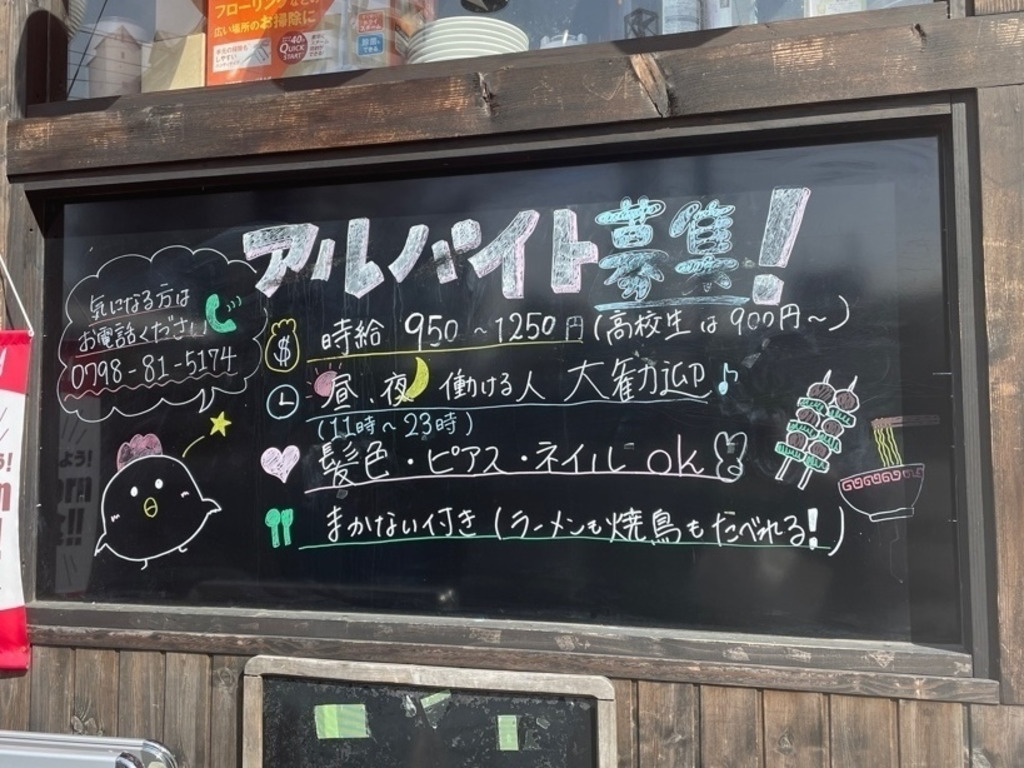 フローリング
広い場所のお掃除に
QUICK
START
アルバイト募集!
気になる方は
お電話ください
0798-81-5174
$
時給 950〜1250円(高校生は900円〜)
昼、夜 働ける人 大歓迎♪
(11時〜23時)
髪色・ピアス・ネイル ok
まかない付き(ラーメンも焼鳥もたべれる!)